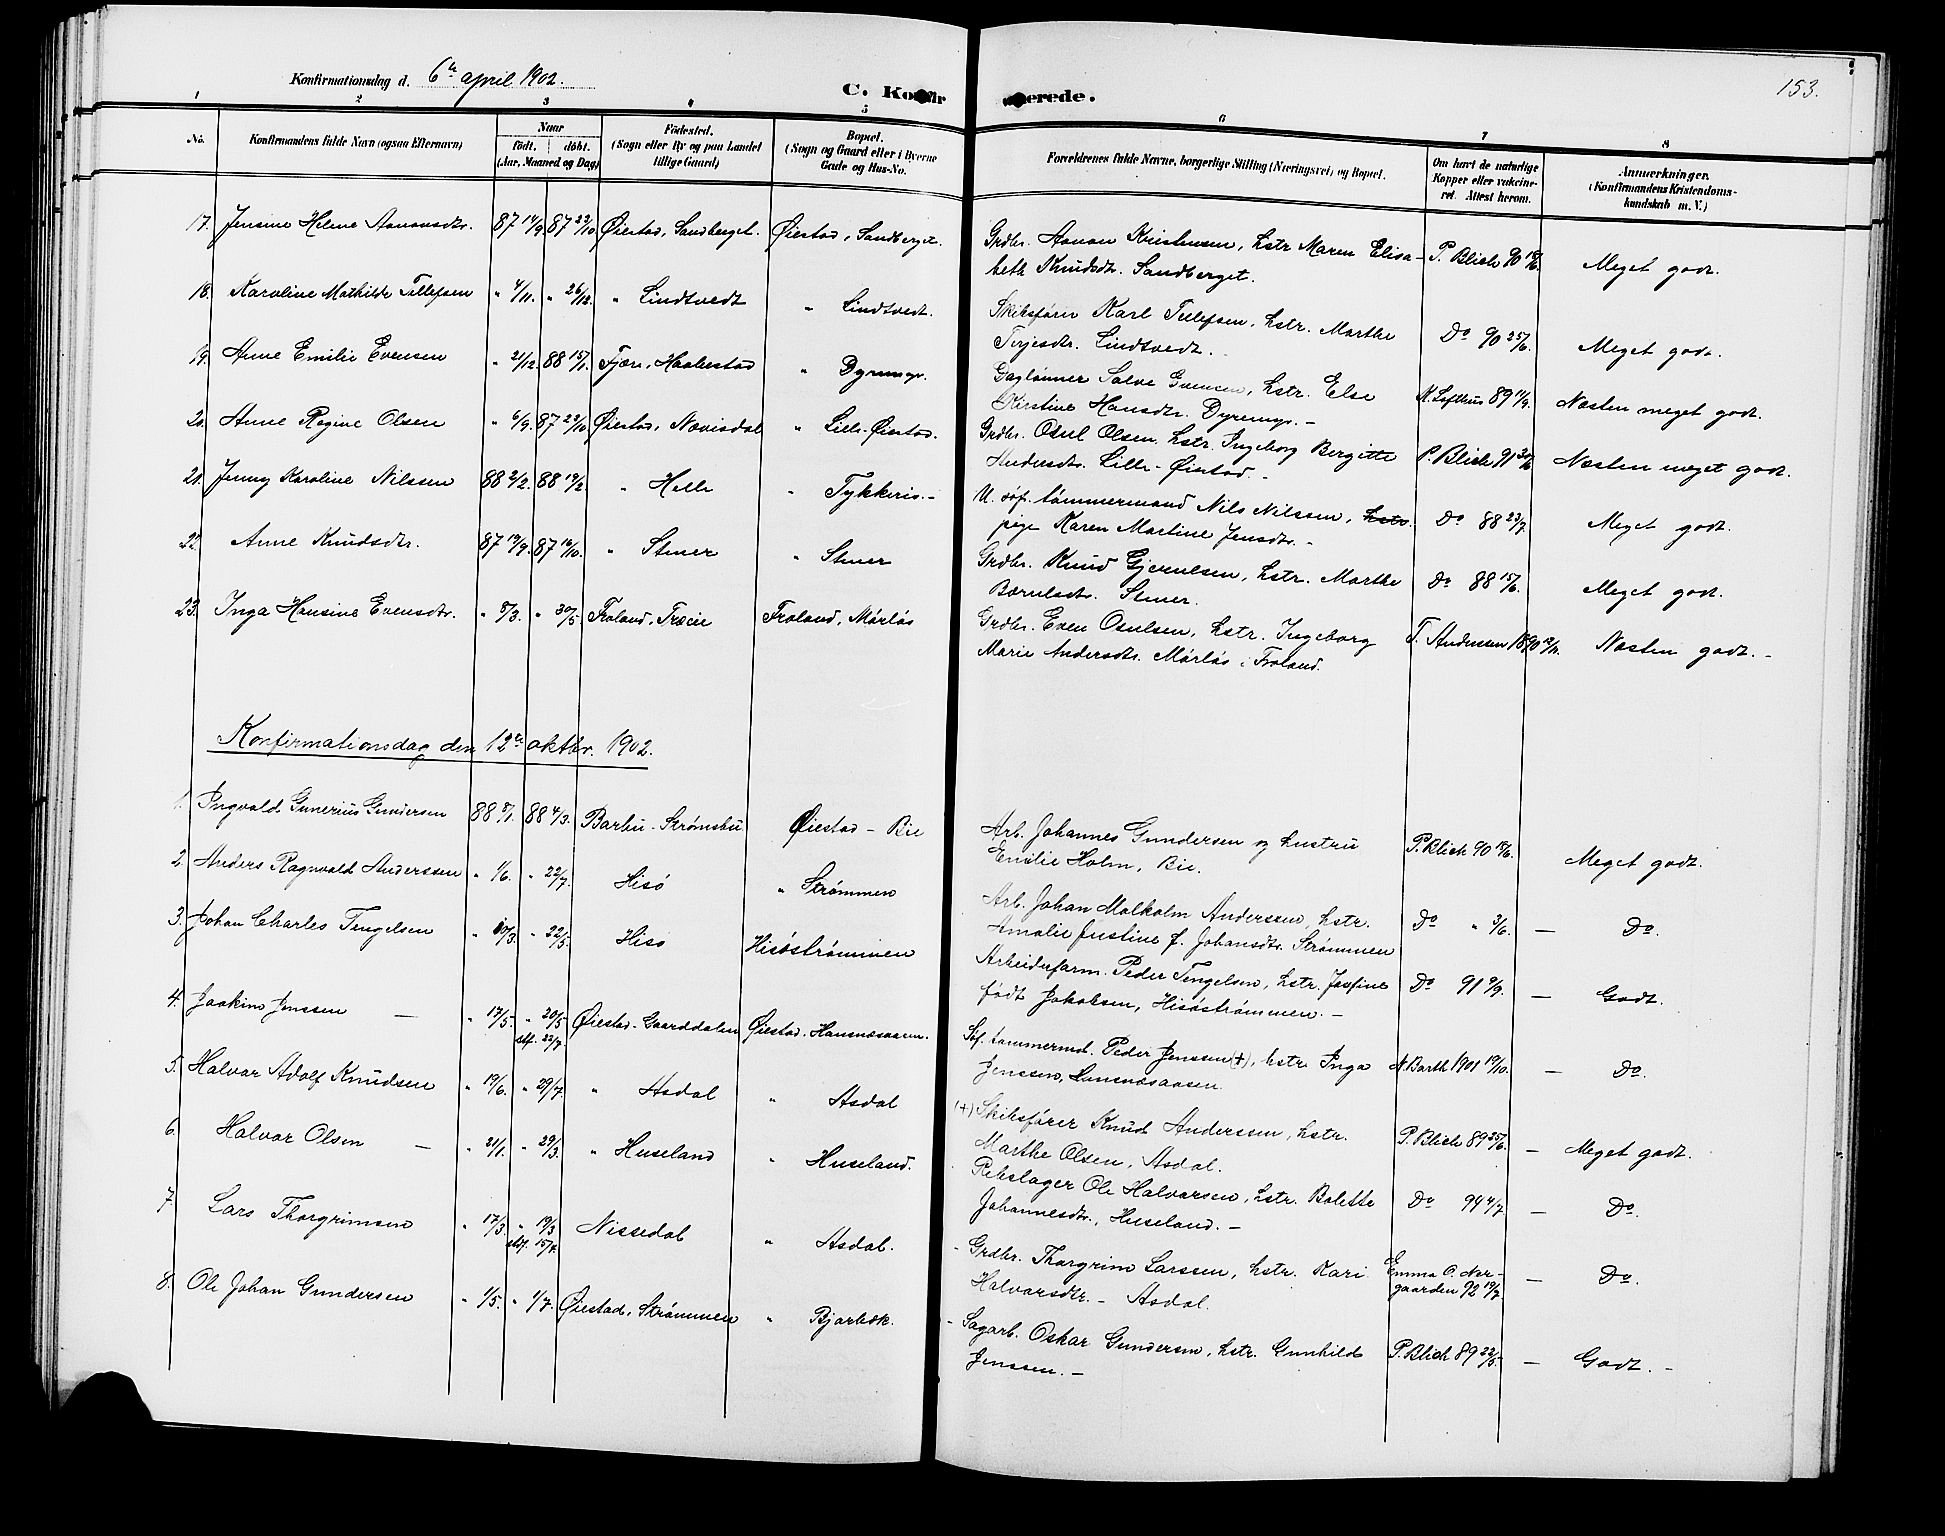 Konfirmationsdag d. 6te april 1902.
C. Konfirmerede.
153.
1 2 3 4 5 6 7 8
No. Konfirmandens fulde Navn (ogsaa Efternavn) Naar født. døbt. (Aar, Maaned og Dag) Fødested. (Sogn eller By og paa Landet tillige Gaard) Bopæl. (Sogn og Gaard eller i Byerne Gade og Hus-No. Forældrenes fulde Navne, borgerlige Stilling (Næringsvei) og Bopæl. Om havt de naturlige Kopper eller vakcineret. Attest herom. Anmærkninger. (Konfirmandens Kristendomskundskab m. V.)
17. Jensine Helene Aanonsdtr. 87 14/9. 87 22/10. Øiestad, Sandberget. Øiestad, Sandberget. Grdbr. Aanon Kristensen, hstr Maren Elisa-
beth Knudsdtr. Sandberget. P. Blich 90 18/6. Meget godt.
18. Karoline Mathilde Tellefsen " 4/11. " 26/12. " Lindtvedt " Lindtvedt. Skibsfører Karl Tellefsen, hstr. Marthe
Terjesdtr. Lindtvedt. Do 90 25/6. Meget godt.
19. Anne Emilie Evensen " 21/12. 88 15/1. Fjære, Haabestad " Dyremyr. Daglønner Salve Evensen, hstr. Else
Kirstine Hansdtr. Dyremyr. – N. Lofthus 89 11/9. Næsten meget godt.
20. Anne Regine Olsen " 6/9. 87 22/10 Øiestad, Nævisdal " Lille-Øiestad. Grdbr. Osul Olsen, hstr. Ingeborg Bergitte
Andersdtr. Lille-Øiestad. – P. Blich 91 30/6 Næsten meget godt.
21. Jenny Karoline Nilssen 88 2/2. 88 19/2. " Helle " Tykkeris. – U. søf. tømmermand Nils Nilssen, hstr.
pige Karen Martine Jensdtr. – Do 88 23/7 Meget godt.
22. Anne Knudsdtr. 87 19/9. 87 16/10. " Stuer " Stuer Grdbr. Knud Gjerulsen, hstr. Marthe
Bærulsdtr. Stuer. Do 88 15/6. Meget godt.
23. Inga Hansine Evensdtr. " 8/3. " 30/5 Froland, Træie Froland, Mørløs Grdbr. Even Osulsen, hstr. Ingeborg
Marie Andersdtr. Mørløs i Froland. T. Andersen 1890 12/11. Næsten godt. –
Konfirmationsdag den 12te oktbr. 1902.
1. Ingvald Gunerius Gundersen 88 8/1. 88 4/3. Barbu - Strømsbu Øiestad – Bie Arb. Johannes Gundersen og hustru
Emilie Holm, Bie. P. Blich 90 18/6. Meget godt.
2. Anders Ragnvald Anderssen " 1/6. " 22/7. Hisø " Strømmen Arb. Johan Malkolm Anderssen, hstr.
Amalie Justine f. Johansdtr. Strømmen Do " 3/6. – Do.
3. Johan Charles Tengelsen " 10/3. " 22/5. Hisø Hisøstrømmen Arbeiderform. Peder Tengelsen, hstr. Josfine
født Jakobsen, Hisøstrømmen. – Do 91 9/9. – Godt.
4. Joakim Jenssen – " 17/5. " 20/5 stf. 22/7. Øiestad - Gaarddalen Øiestad. Hansnæsaasen. Søf. tømmermd. Peder Jenssen (+), hstr. Inga
Jenssen, Hansnæsaasen. N. Barth 1901 19/10. – Do.
5. Halvar Adolf Knudsen " 19/6. " 29/7. " Asdal " Asdal (+) Skibsfører Knud Anderssen, hstr.
Marthe Olsen, Asdal. P. Blich 89 25/6. – Meget godt.
6. Halvar Olsen – " 21/1. " 29/3. " Huseland " Huseland. Rebslager Ole Halvorsen, hstr. Bolette
Johannesdtr., Huseland. – Do 94 4/7 – Do.
7. Lars Thorgrimsen " 17/3. " 19/3 stf. 15/4. Nissedal " Asdal. - Grdbr. Thorgrim Larssen, hstr. Kari
Halvorsdtr. – Asdal. Emma O. Nor-
gaarden 92 19/7. – Do.
8. Ole Johan Gundersen " 1/5. " 1/7. Øiestad, Strømmen " Bjorbæk. - Sagarb. Oskar Gundersen, hstr. Gunhild
Jenssen. – P. Blich 89 22/5. – Godt. –